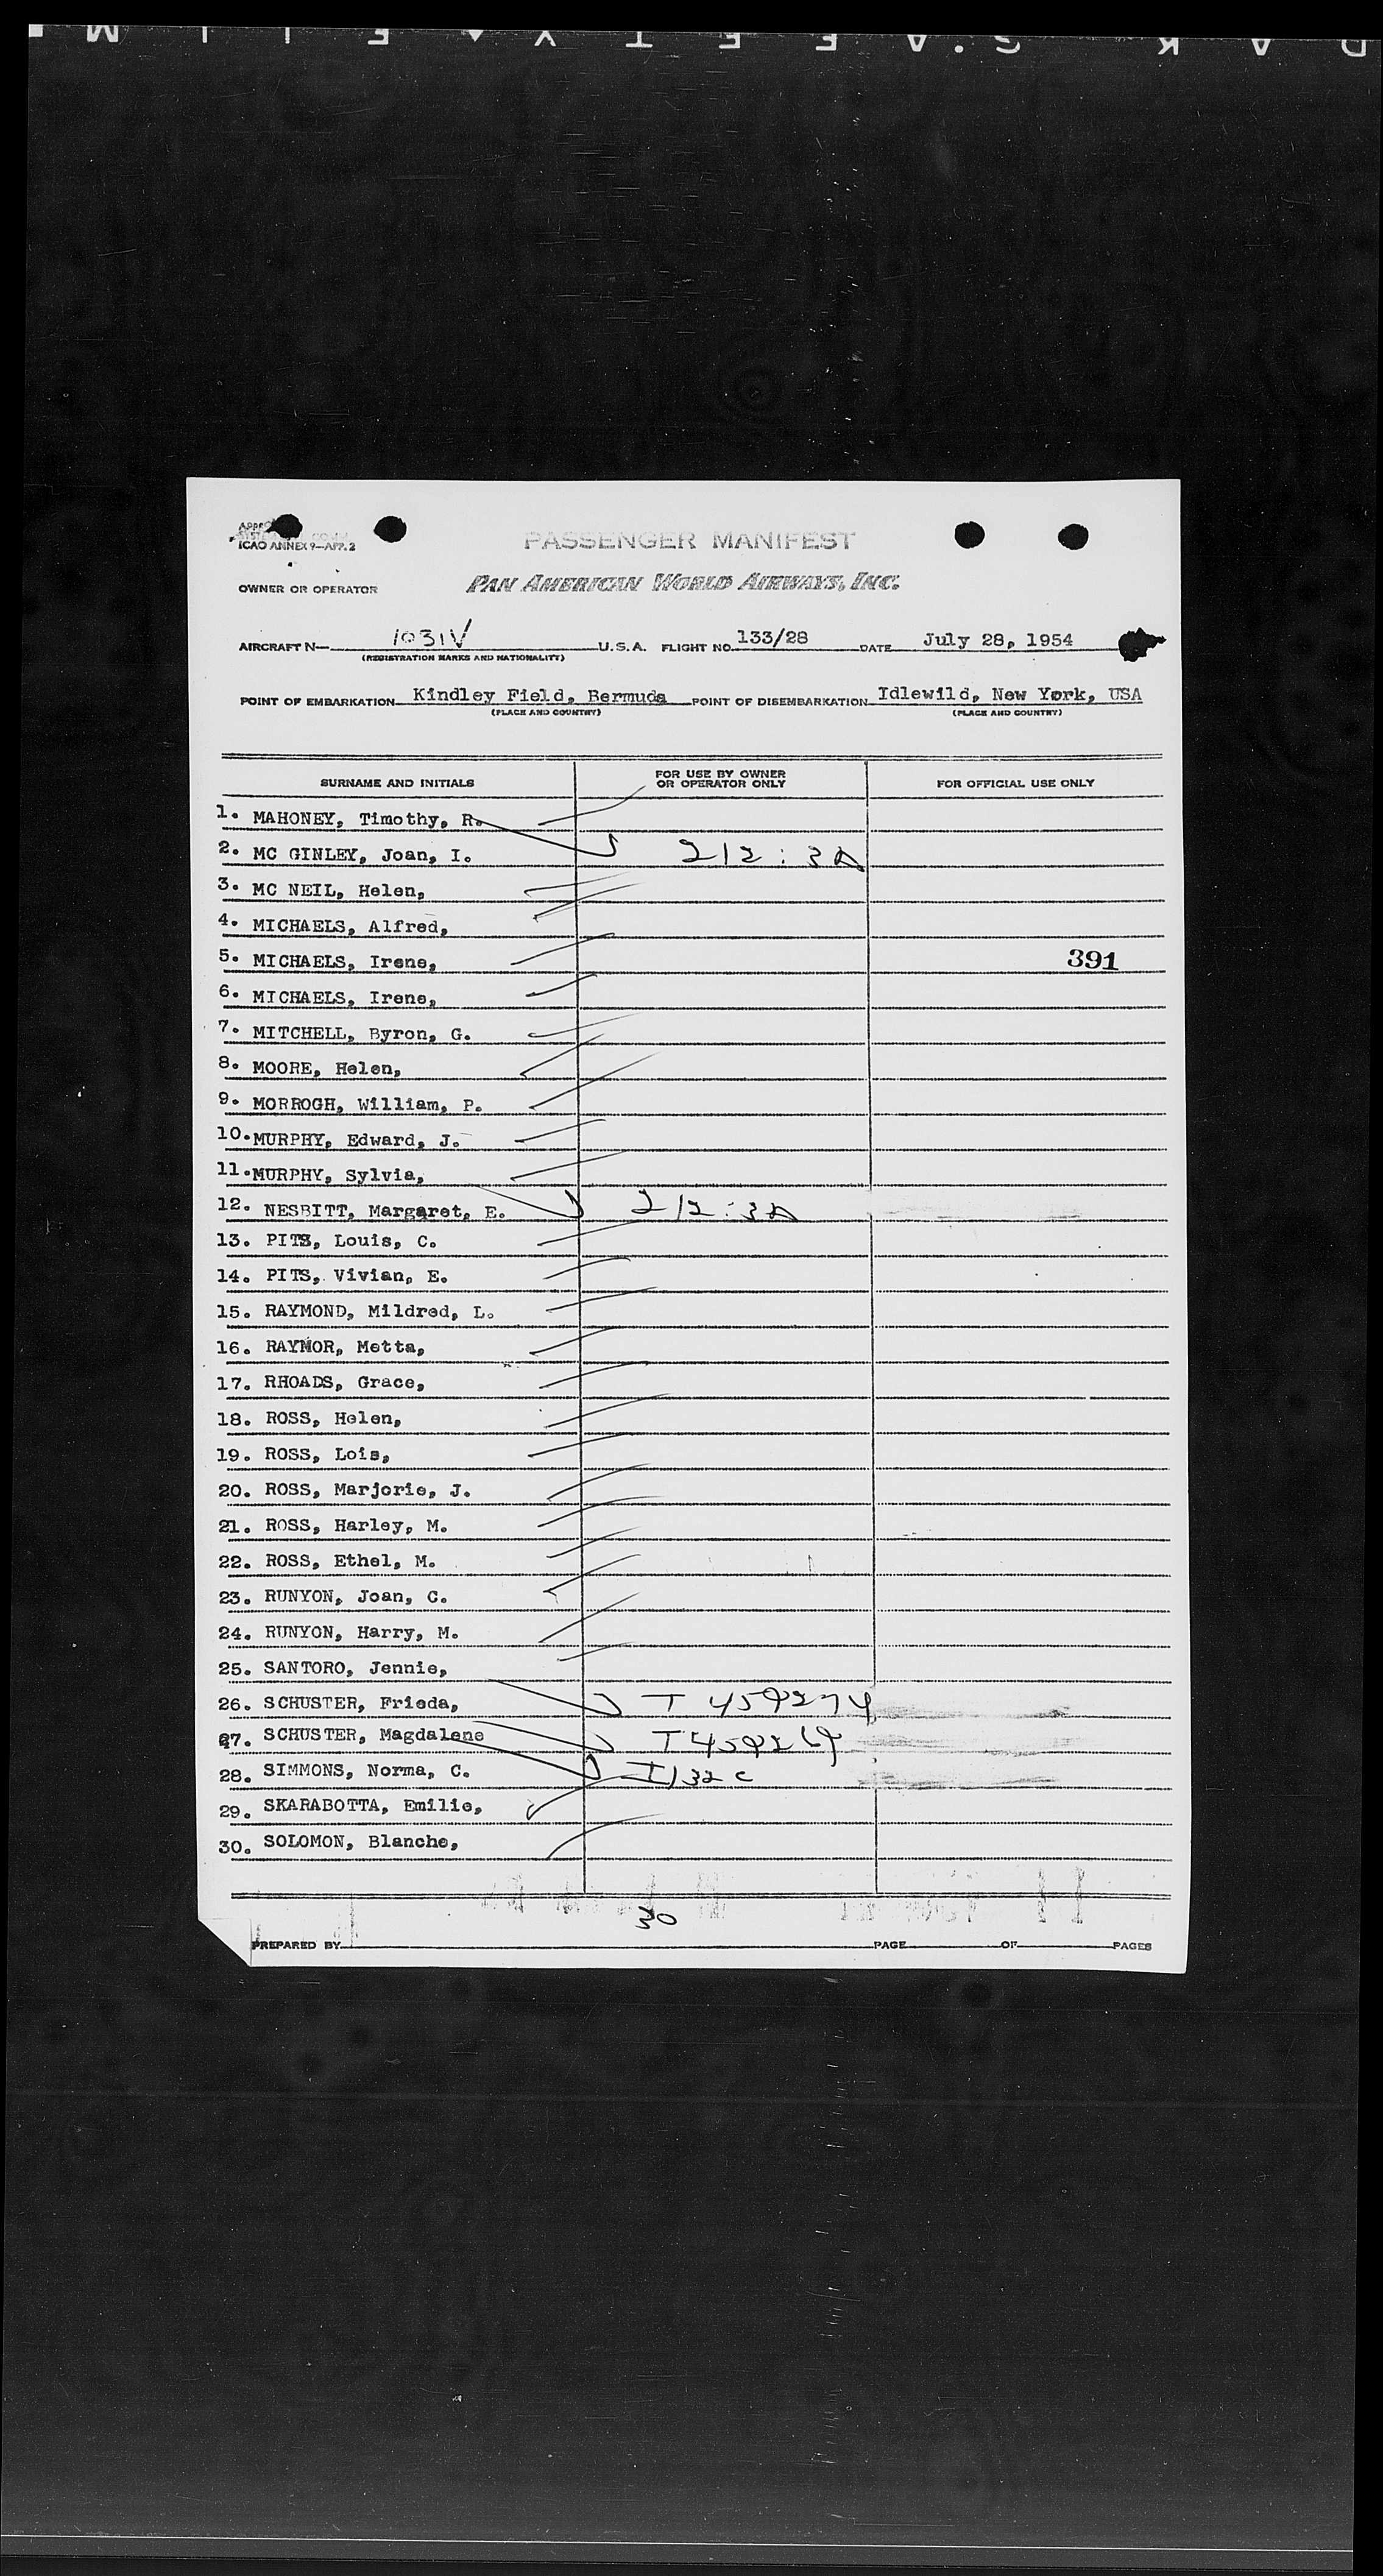 ICAO ANNEX 9—APP. 2
PASSENGER MANIFEST
OWNER OR OPERATOR PAN AMERICAN WORLD AIRWAYS, INC.
AIRCRAFT N— 1031V U.S.A. FLIGHT NO. 133/28 DATE July 28, 1954
(REGISTRATION MARKS AND NATIONALITY)
POINT OF EMBARKATION Kindley Field, Bermuda POINT OF DISEMBARKATION Idlewild, New York, USA
(PLACE AND COUNTRY) (PLACE AND COUNTRY)
SURNAME AND INITIALS FOR USE BY OWNER OR OPERATOR ONLY FOR OFFICIAL USE ONLY
1. MAHONEY, Timothy, R.
2. MC GINLEY, Joan, I. 212:3A
3. MC NEIL, Helen,
4. MICHAELS, Alfred,
5. MICHAELS, Irene, 391
6. MICHAELS, Irene,
7. MITCHELL, Byron, G.
8. MOORE, Helen,
9. MORROGH, William, P.
10. MURPHY, Edward, J.
11. MURPHY, Sylvia,
12. NESBITT, Margaret, E. 212:3A
13. PITS, Louis, C.
14. PITS, Vivian, E.
15. RAYMOND, Mildred, L.
16. RAYNOR, Metta,
17. RHOADS, Grace,
18. ROSS, Helen,
19. ROSS, Lois,
20. ROSS, Marjorie, J.
21. ROSS, Harley, M.
22. ROSS, Ethel, M.
23. RUNYON, Joan, C.
24. RUNYON, Harry, M.
25. SANTORO, Jennie,
26. SCHUSTER, Frieda, T 459274
27. SCHUSTER, Magdalene T459269
28. SIMMONS, Norma, C. I/32 c
29. SKARABOTTA, Emilie,
30. SOLOMON, Blanche,
30
PREPARED BY PAGE OF PAGES